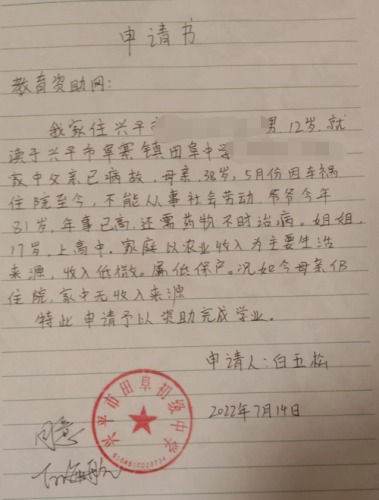 申请书
教育资助网:
我家住兴平市 男,12岁,就
读于兴平市阜寨镇田阜中学
家中父亲已病故,母亲,38岁,5月份因车祸
住院至今,不能从事社会劳动.爷爷今年
81岁,年事已高,还需药物不时治病。姐姐,
17岁,上高中,家庭以农业收入为主要生活
来源,收入低微。属低保户。况如今母亲仍
住院,家中无收入来源
特此申请予以资助完成学业。
申请人:白五松
2022年7月14日
兴平市田阜初级中学
同意